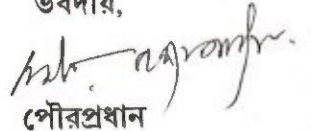 ভবদীয়,
পৌরপ্রধান